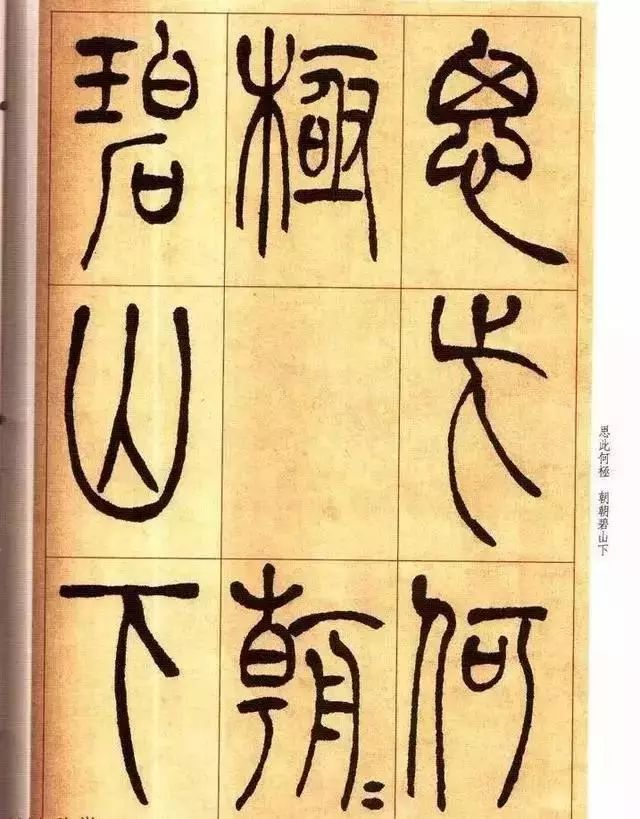 思此何
極朝〻
碧山下
思此何極 朝朝碧山下